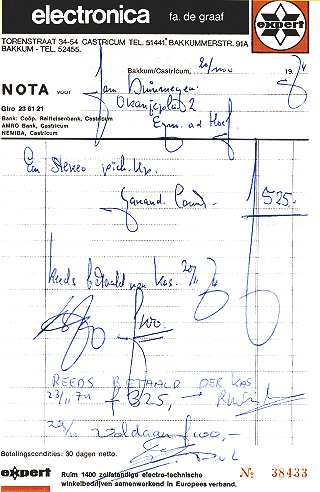 electronica fa. de graaf
expert
TORENSTRAAT 34-54 CASTRICUM TEL. 51441. BAKKUMMERSTR. 91A
BAKKUM - TEL. 52455.
Bakkum/Castricum, 20/nov 1974
NOTA voor Jan Nimmegen
Giro 23 61 21 Oranjeplats 2
Bank: Coöp. Raiffeisenbank, Castricum
AMRO Bank, Castricum
NEMIBA, Castricum
Egm. a.d. Hoef
Een Stereo pick-up.
Garrard 525.-
Reeds betaald van kas. 20/11 74
f 100.-
REEDS BETAALD PER KAS
23/11 74 f 325,-
voldaan f 100,-
Betalingscondities: 30 dagen netto.
expert Ruim 1400 zelfstandige electro-technische
winkelbedrijven samenwerkend in Europees verband.
№ 38433